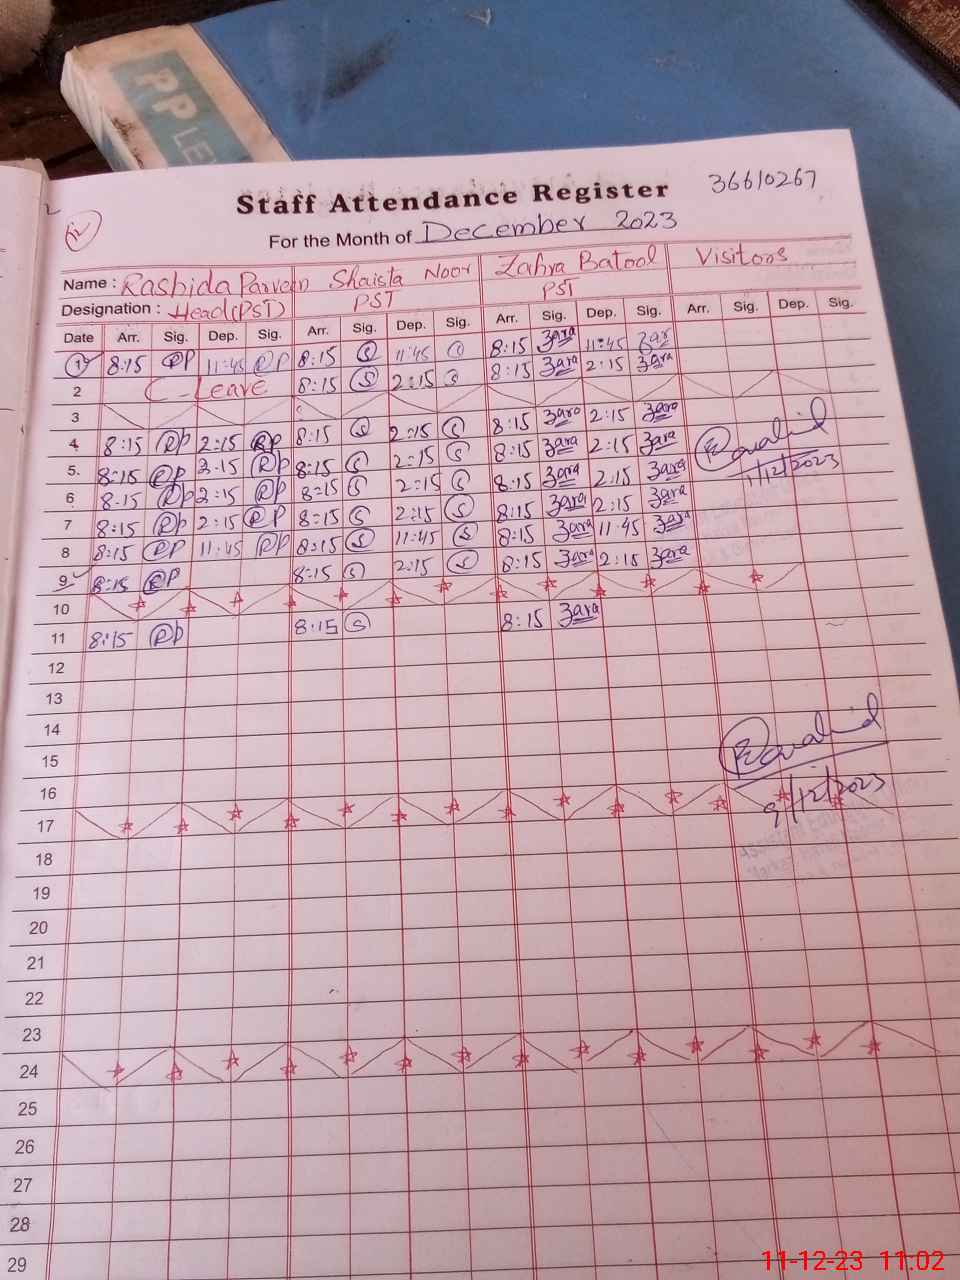 RPP LE
Staff Attendance Register 36610267
For the Month of December 2023
Name : Rashida Parveen Shaista Noor Zahra Batool Visitors
Designation : Head(PST) PST PST
Date Arr. Sig. Dep. Sig. Arr. Sig. Dep. Sig. Arr. Sig. Dep. Sig. Arr. Sig. Dep. Sig.
1 8:15 RP 11:45 RP 8:15 S 11:45 S 8:15 Zara 11:45 Zar
2 C-Leave 8:15 S 2:15 S 8:15 Zara 2:15 Zara
3
4 8:15 RP 2:15 RP 8:15 S 2:15 S 8:15 Zara 2:15 Zara
5. 8:15 RP 2:15 RP 8:15 S 2:15 S 8:15 Zara 2:15 Zara
1/12/2023
6 8:15 RP 2:15 RP 8:15 S 2:15 S 8:15 Zara 2:15 Zara
7 8:15 RP 2:15 RP 8:15 S 2:15 S 8:15 Zara 2:15 Zara
8 8:15 RP 11:45 RP 8:15 S 11:45 S 8:15 Zara 11:45 Zara
9 8:15 RP 8:15 S 2:15 S 8:15 Zara 2:15 Zara
10
11 8:15 RP 8:15 S 8:15 Zara
12
13
14
15
16
9/12/2023
17
18
19
20
21
22
23
24
25
26
27
28
29
11-12-23 11:02